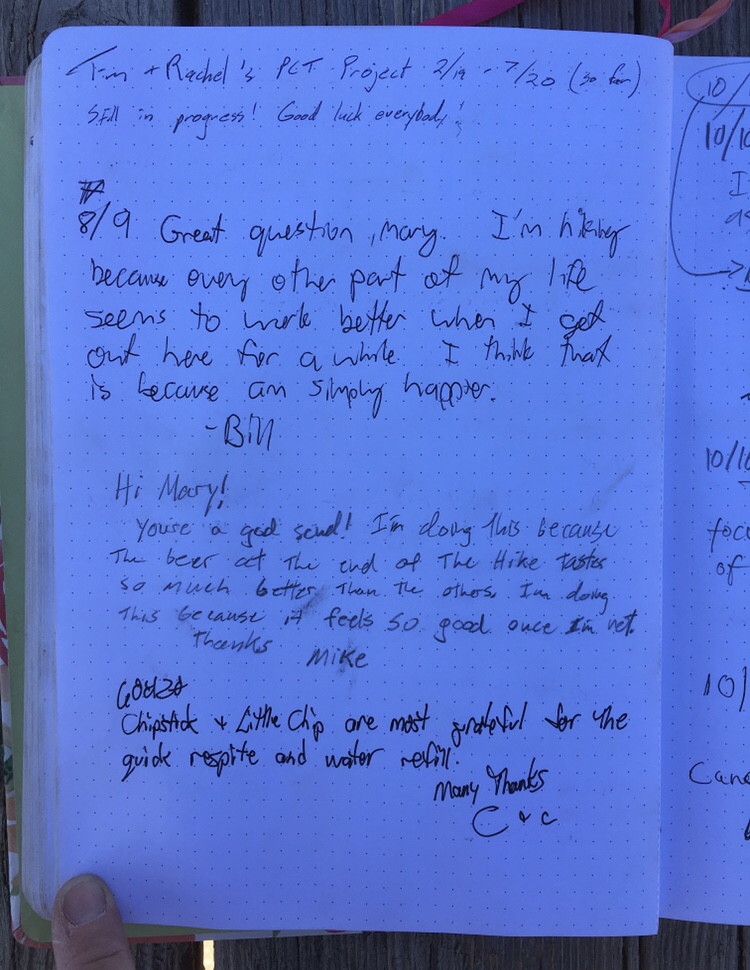 Tim + Rachel's PCT Project 2/19 - 7/20 (so far)
Still in progress! Good luck everybody!
8/9 Great question, Mary. I'm hiking
because every other part of my life
seems to work better when I get
out here for a while. I think that
is because am simply happier.
-Bill
Hi Mary!
You're a god send! I'm doing this because
The beer at The end of The Hike tastes
so much better Than The others. I'm doing
This because it feels so good once I'm not.
Thanks Mike
Chipstick + Little Chip are most grateful for the
quick respite and water refill.
Many Thanks
C + C
10/
10/10
I
10/10
focu
of
10/
Cana